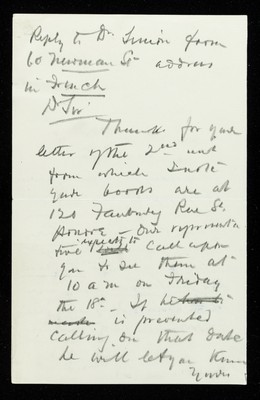 Reply to Dr Simon from
60 Newman St address
in French
D Sir
Thanks for your
letter of the 2nd inst
from which I note
your books are at
120 Faubourg Rue St
Honore - Our representa
tive expects to call upon
you to see them at
10 am on Friday
the 18th - If he
is prevented
calling on that date
he will let you know
Yours